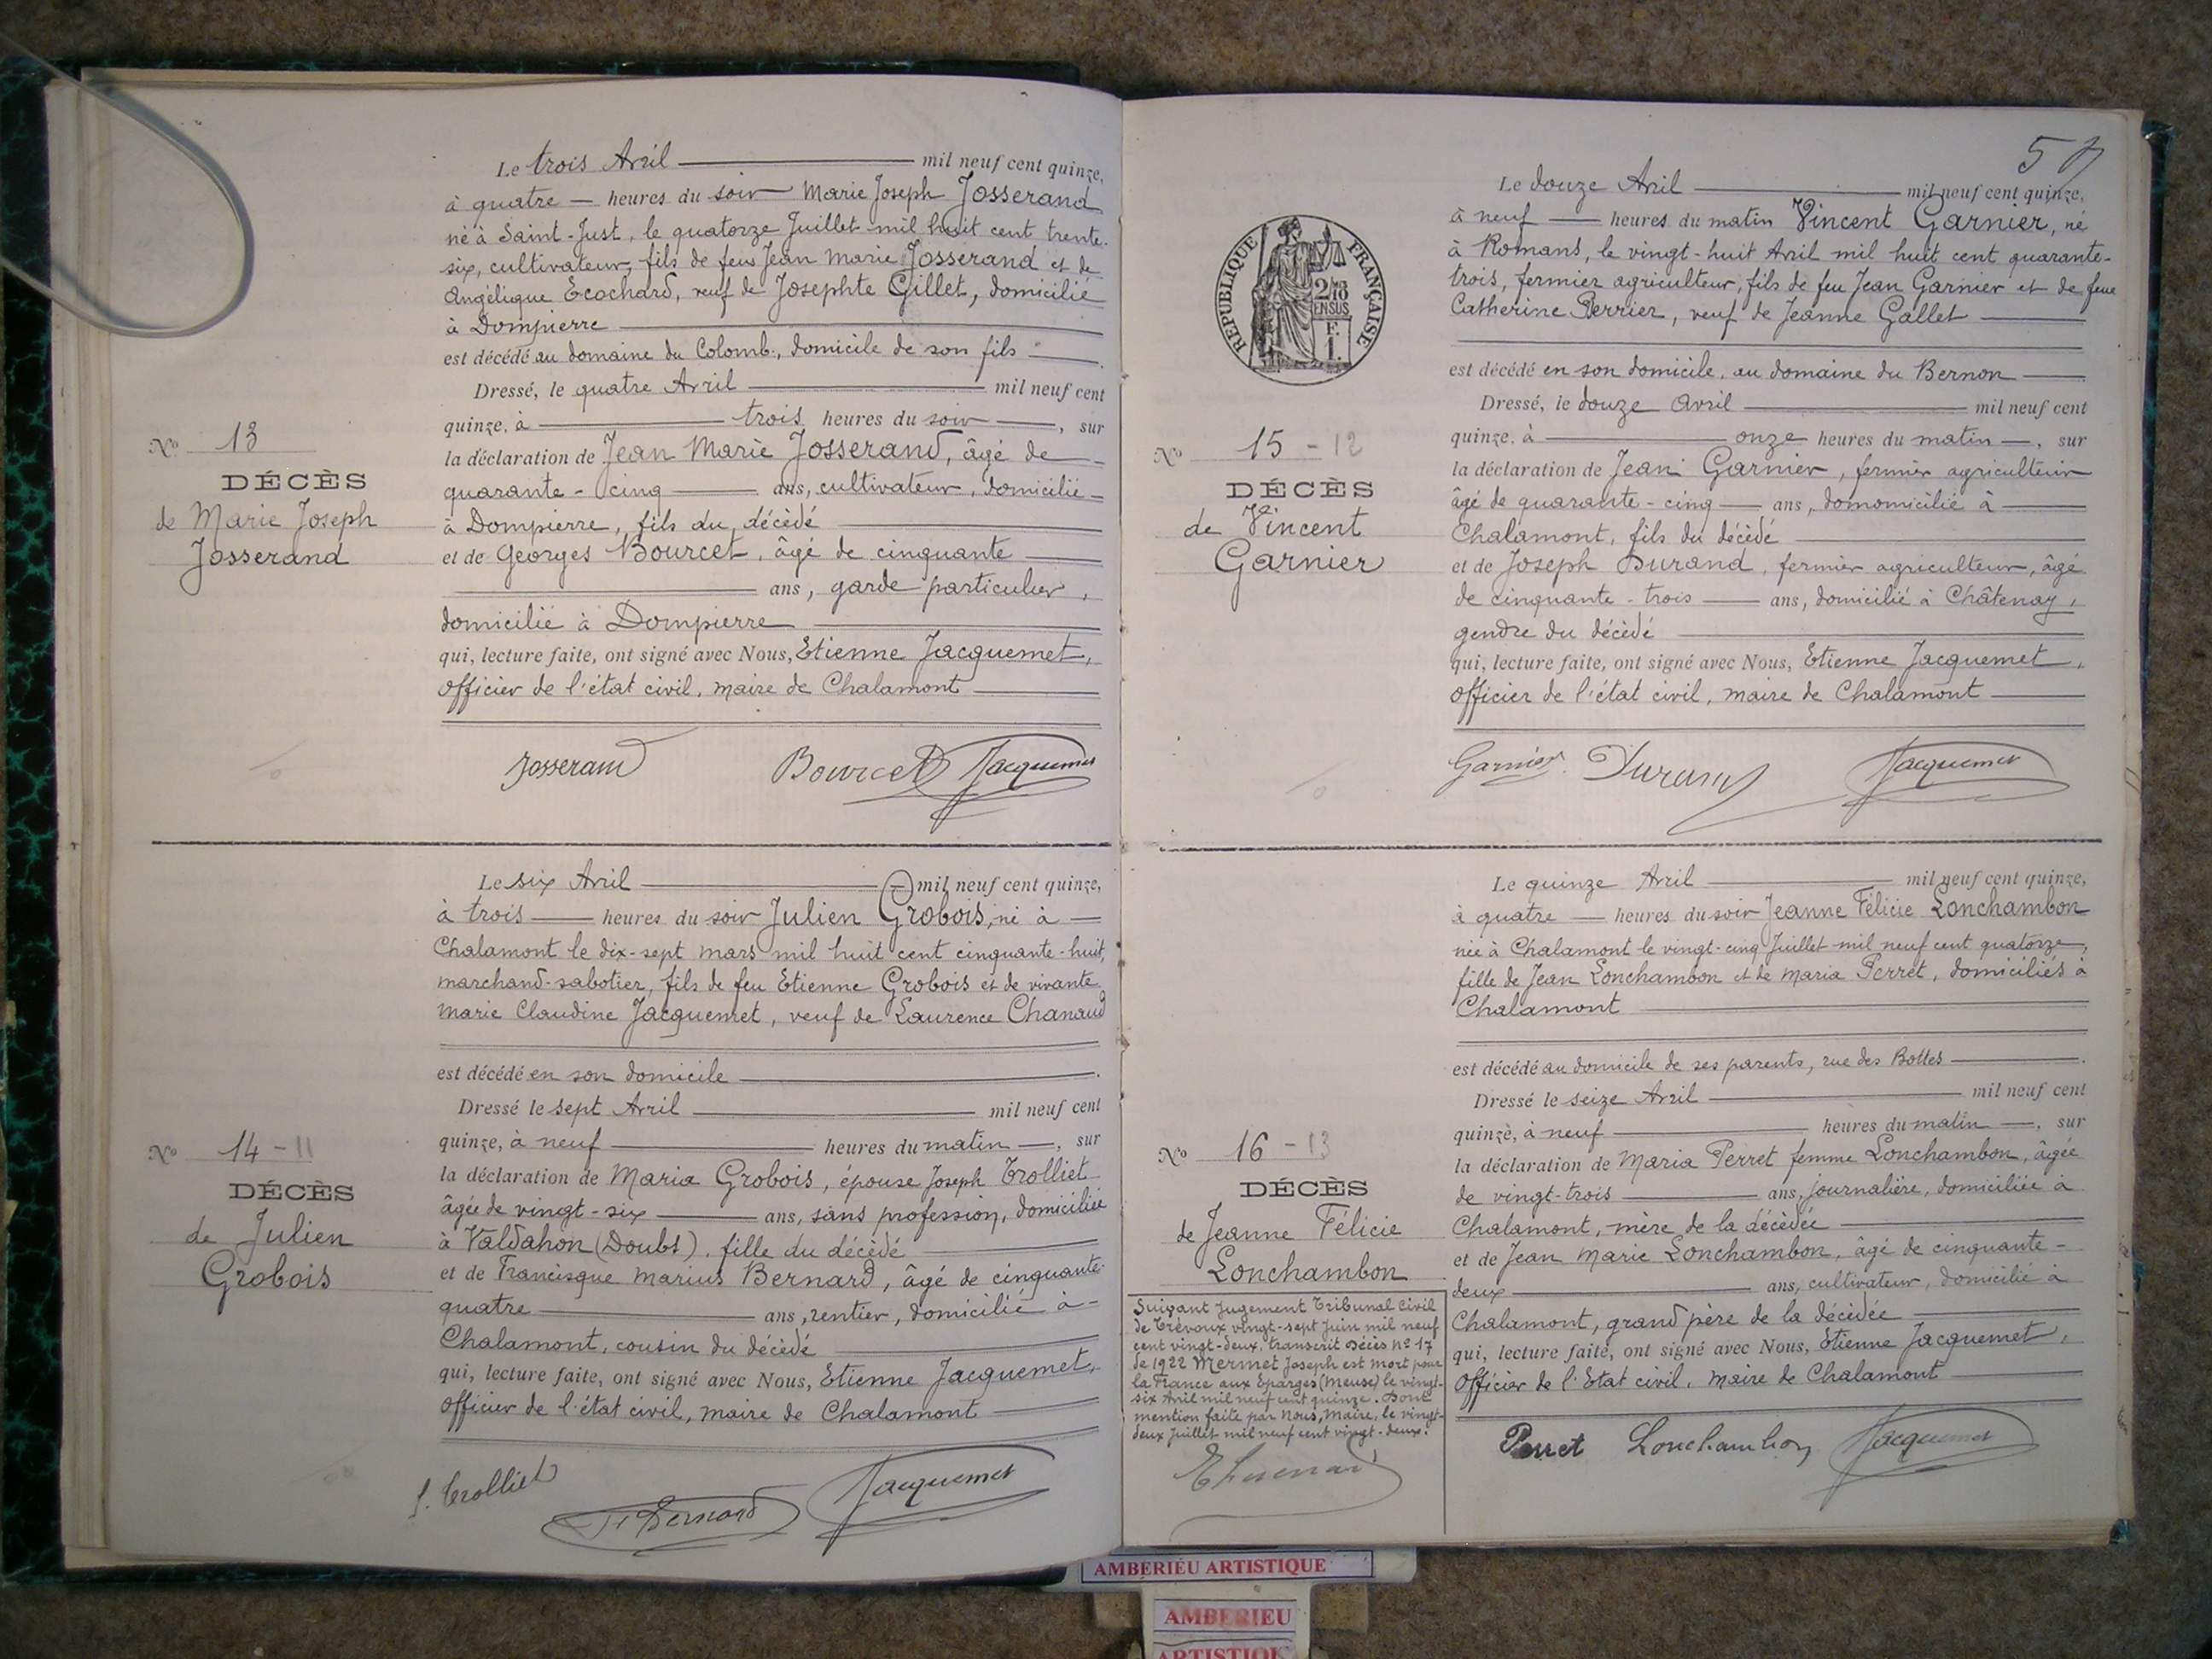 Le trois Avril mil neuf cent quinze,
à quatre heures du soir Marie Joseph Josserand
né à Saint-Just, le quatorze Juillet mil huit cent trente-
six, cultivateur, fils de feus Jean Marie Josserand et de
Angélique Ecochard, veuf de Josephte Gillet, domicilié
à Dompierre
est décédé au domaine du Colomb., domicile de son fils
Dressé, le quatre Avril mil neuf cent
quinze, à trois heures du soir, sur
la déclaration de Jean Marie Josserand, âgé de
quarante-cinq ans, cultivateur, domicilié
à Dompierre, fils du décédé
et de Georges Bourcet, âgé de cinquante
ans, garde particulier,
domicilié à Dompierre
qui, lecture faite, ont signé avec Nous, Etienne Jacquemet,
officier de l'état civil, maire de Chalamont
Josserand Bourcet Jacquemet
No 13
DÉCÈS
de Marie Joseph
Josserand
Le six Avril mil neuf cent quinze,
à trois heures du soir Julien Grobois, né à
Chalamont le dix-sept mars mil huit cent cinquante-huit,
marchand-sabotier, fils de feu Etienne Grobois et de vivante
Marie Claudine Jacquemet, veuf de Laurence Chanaud
est décédé en son domicile
Dressé le sept Avril mil neuf cent
quinze, à neuf heures du matin, sur
la déclaration de Maria Grobois, épouse Joseph Trolliet
âgée de vingt-six ans, sans profession, domiciliée
à Valdahon (Doubs), fille du décédé
et de Francisque Marius Bernard, âgé de cinquante-
quatre ans, rentier, domicilié à
Chalamont, cousin du décédé
qui, lecture faite, ont signé avec Nous, Etienne Jacquemet,
officier de l'état civil, maire de Chalamont
Trolliet
Bernard Jacquemet
No 14-11
DÉCÈS
de Julien
Grobois
REPUBLIQUE FRANÇAISE
2/10
EN SUS
F.
1.
Le douze Avril mil neuf cent quinze,
à neuf heures du matin Vincent Garnier, né
à Romans, le vingt-huit Avril mil huit cent quarante-
trois, fermier agriculteur, fils de feu Jean Garnier et de feue
Catherine Perrier, veuf de Jeanne Gallet
est décédé en son domicile, au domaine du Bernon
Dressé, le douze avril mil neuf cent
quinze, à onze heures du matin, sur
la déclaration de Jean Garnier, fermier agriculteur
âgé de quarante-cinq ans, domomicilié à
Chalamont, fils du décédé
et de Joseph Durand, fermier agriculteur, âgé
de cinquante-trois ans, domicilié à Châtenay,
gendre du décédé
qui, lecture faite, ont signé avec Nous, Etienne Jacquemet,
officier de l'état civil, maire de Chalamont
Garnier Durand Jacquemet
No 15-12
DÉCÈS
de Vincent
Garnier
Le quinze Avril mil neuf cent quinze,
à quatre heures du soir Jeanne Félicie Lonchambon
née à Chalamont le vingt-cinq Juillet mil neuf cent quatorze,
fille de Jean Lonchambon et de Maria Perret, domiciliés à
Chalamont
est décédé au domicile de ses parents, rue des Bottes
Dressé le seize Avril mil neuf cent
quinze, à neuf heures du matin, sur
la déclaration de Maria Perret femme Lonchambon, âgée
de vingt-trois ans, journalière, domiciliée à
Chalamont, mère de la décédée
et de Jean Marie Lonchambon, âgé de cinquante-
deux ans, cultivateur, domicilié à
Chalamont, grand père de la décédée
qui, lecture faite, ont signé avec Nous, Etienne Jacquemet,
officier de l'Etat civil, maire de Chalamont
Perret Lonchambon Jacquemet
No 16-13
DÉCÈS
de Jeanne Félicie
Lonchambon
Suivant Jugement Tribunal Civil
de Trévoux vingt-sept Juin mil neuf
cent vingt-deux, transcrit Décès no 17
de 1922 Mermet Joseph est mort pour
la France aux Eparges (Meuse) le vingt-
six Avril mil neuf cent quinze. Dont
mention faite par Nous, Maire, le vingt-
deux Juillet mil neuf cent vingt-deux.
AMBERIEU ARTISTIQUE
AMBERIEU
ARTISTIQUE